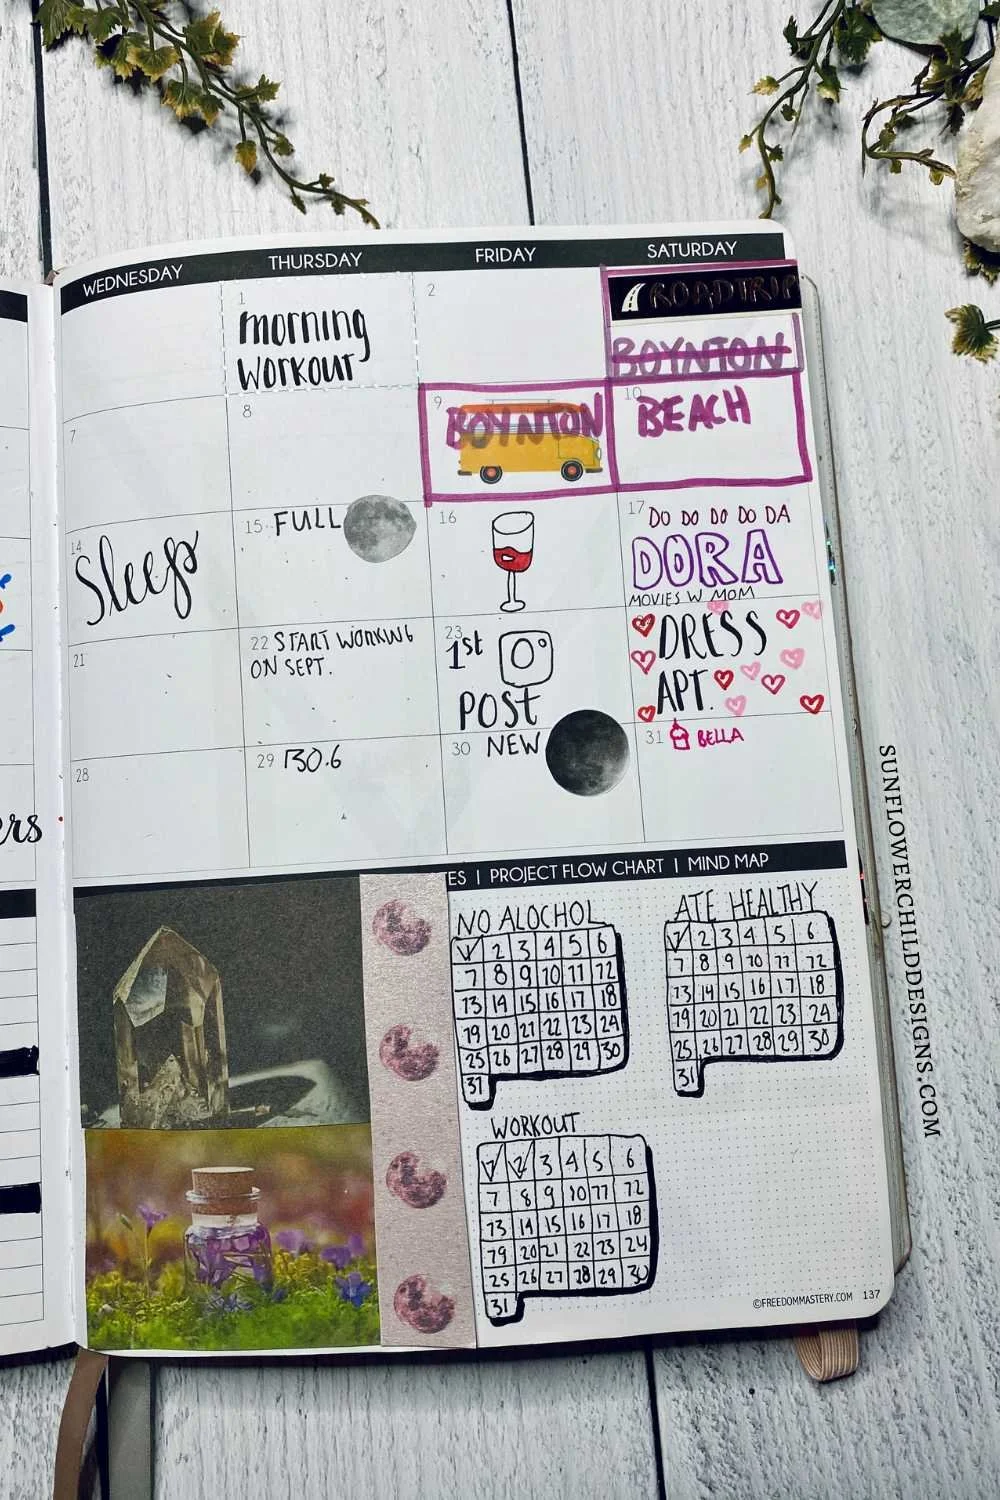 WEDNESDAY THURSDAY FRIDAY SATURDAY
1
morning
WORKOUT
2
ROADTRIP
BOYNTON
7
8
9
BOYNTON
10
BEACH
14
Sleep
15 FULL
16
17
DO DO DO DO DA
DORA
MOVIES W MOM
21
22 START WORKING
ON SEPT.
23
1st
POST
DRESS
APT.
28
29 130.6
30 NEW
31 BELLA
ers
ES | PROJECT FLOW CHART | MIND MAP
NO ALOCHOL
1 2 3 4 5 6
7 8 9 10 11 12
13 14 15 16 17 18
19 20 21 22 23 24
25 26 27 28 29 30
31
ATE HEALTHY
1 2 3 4 5 6
7 8 9 10 11 12
13 14 15 16 17 18
19 20 21 22 23 24
25 26 27 28 29 30
31
WORKOUT
1 2 3 4 5 6
7 8 9 10 11 12
13 14 15 16 17 18
19 20 21 22 23 24
25 26 27 28 29 30
31
©FREEDOMMASTERY.COM 137
SUNFLOWERCHILDDESIGNS.COM